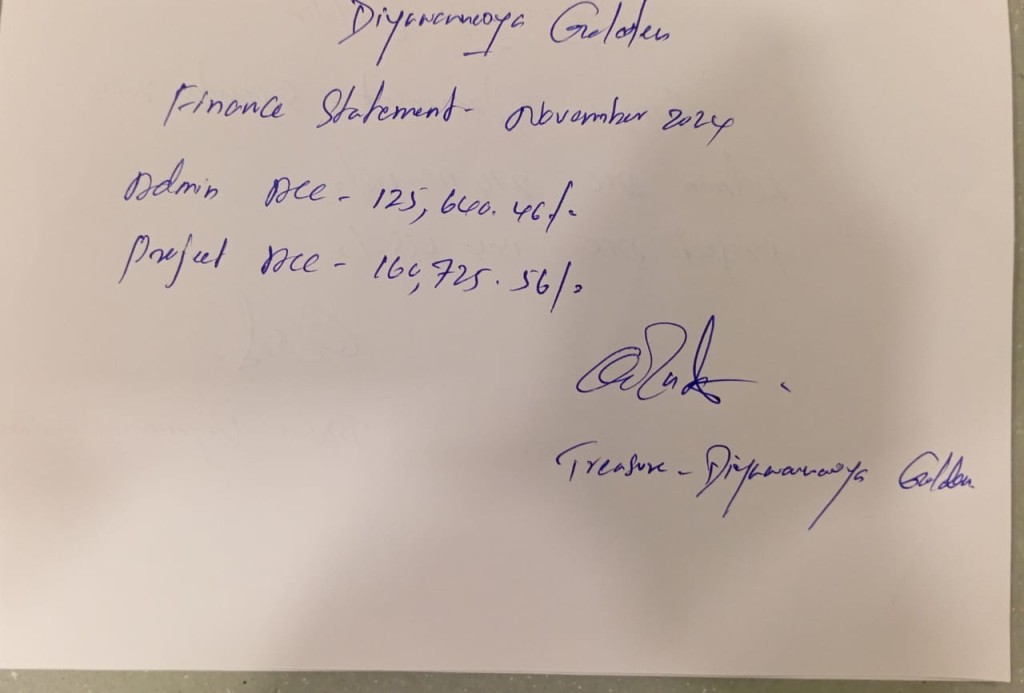 Diyawannaoya Golden
Finance Statement - November 2024
Admin Acc - 125,640.46/-
Project Acc - 160,725.56/-
Treasure - Diyawannaoya Golden